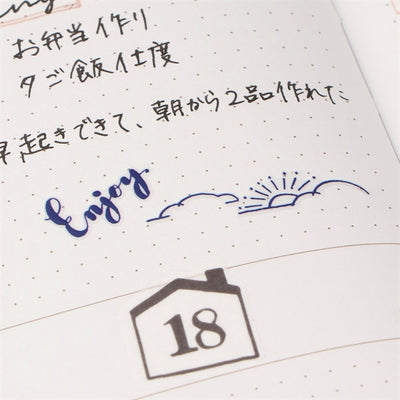 ng
お弁当作り
夕ご飯仕度
早起きできて、朝から2品作れた
Enjoy.
18